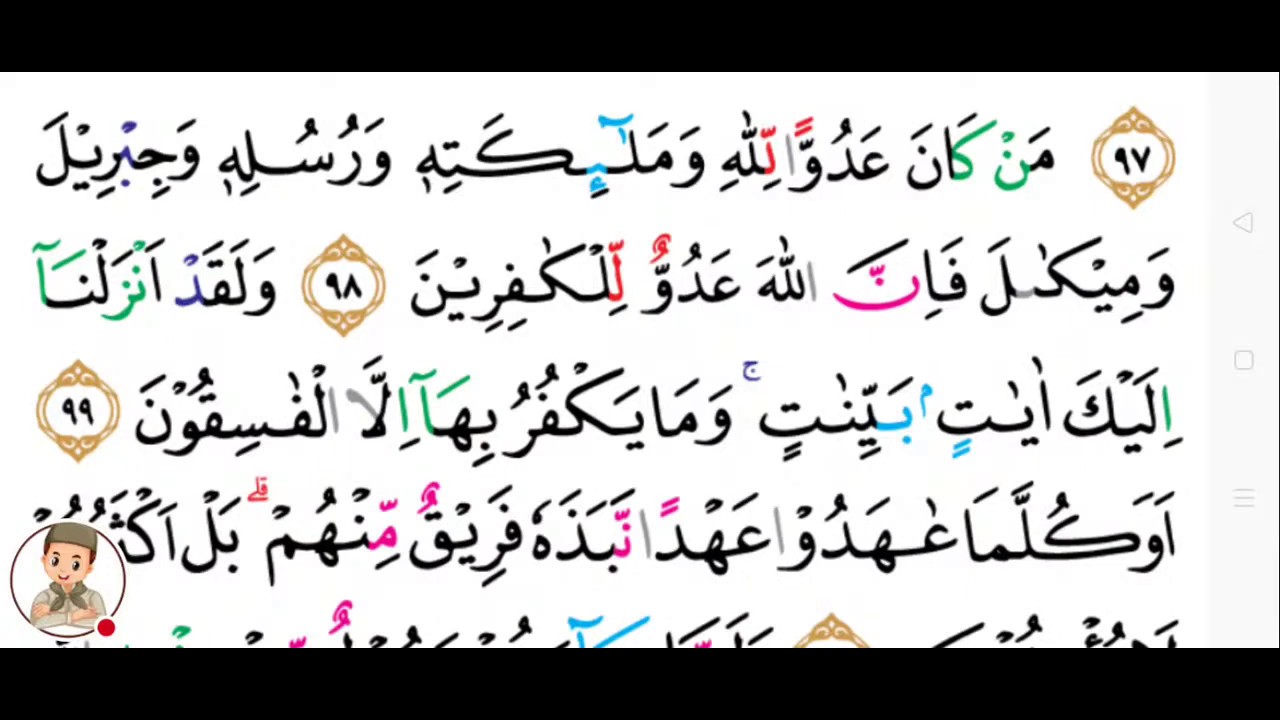 ٩٧ مَنْ كَانَ عَدُوًّا لِّلّٰهِ وَمَلٰۤىِٕكَتِهٖ وَرُسُلِهٖ وَجِبْرِيْلَ
وَمِيْكٰىلَ فَاِنَّ اللّٰهَ عَدُوٌّ لِّلْكٰفِرِيْنَ ٩٨ وَلَقَدْ اَنْزَلْنَآ
اِلَيْكَ اٰيٰتٍۢ بَيِّنٰتٍۚ وَمَا يَكْفُرُ بِهَآ اِلَّا الْفٰسِقُوْنَ ٩٩
اَوَكُلَّمَا عٰهَدُوْا عَهْدًا نَّبَذَهٗ فَرِيْقٌ مِّنْهُمْۗ بَلْ